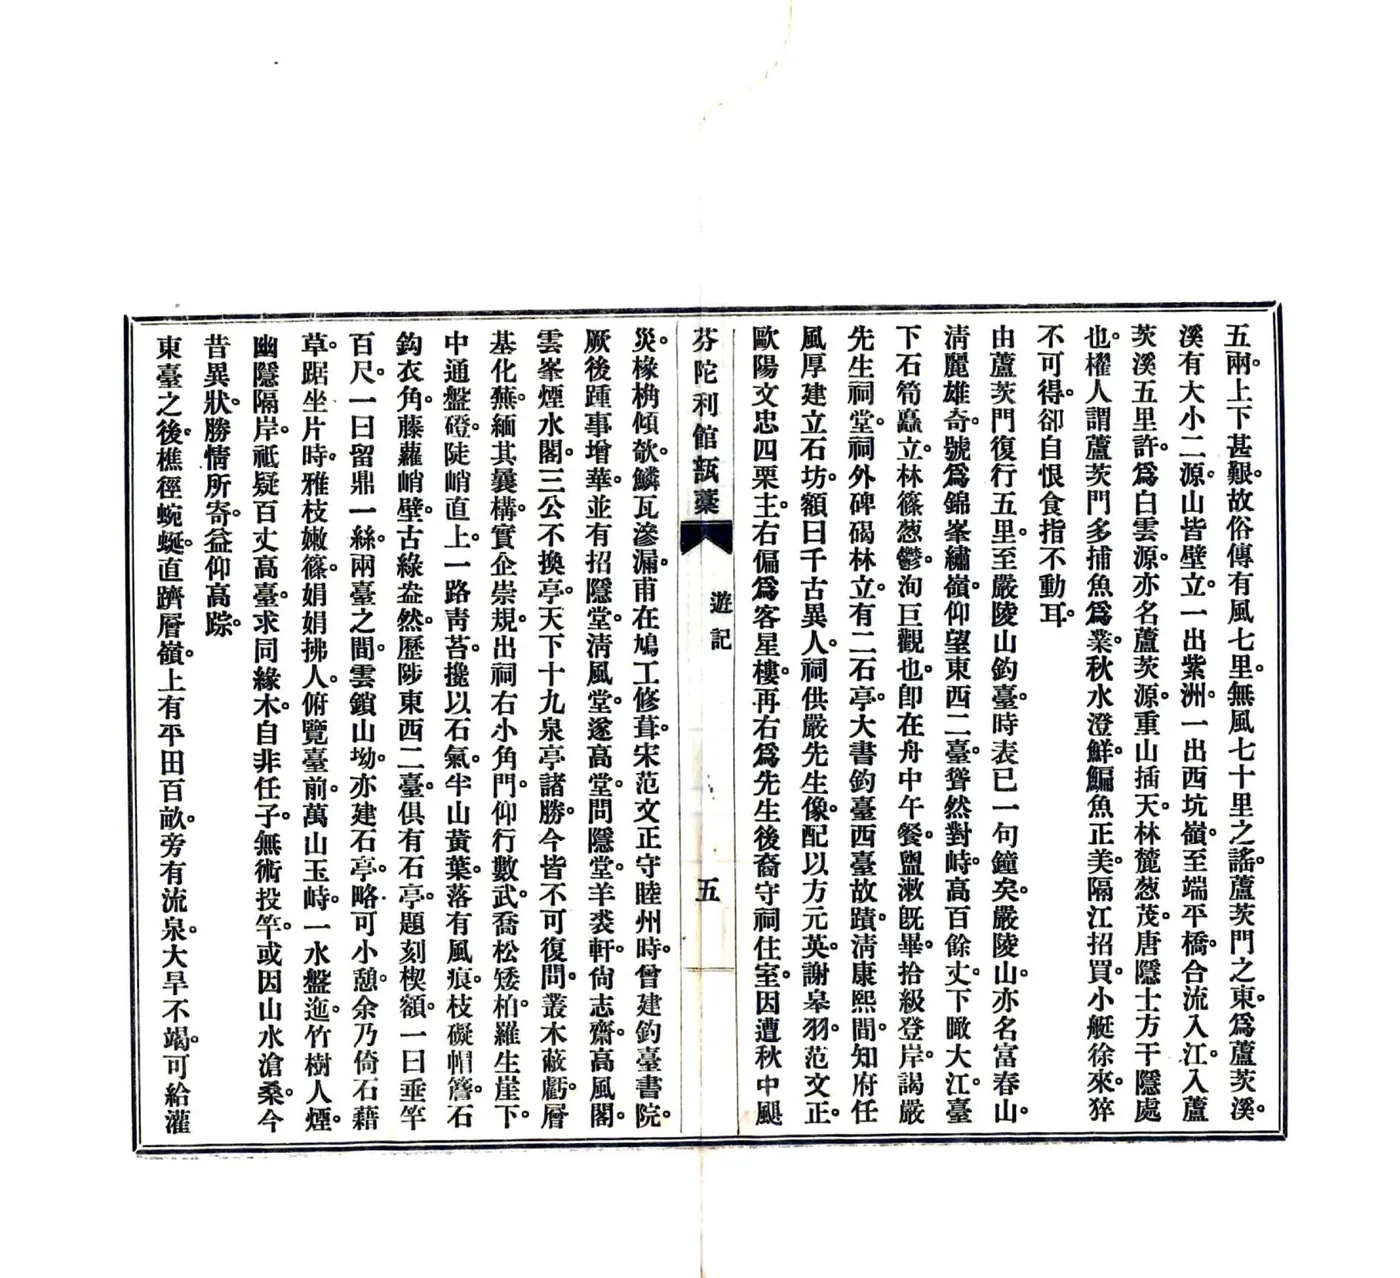 五兩。上下甚艱。故俗傳有風七里。無風七十里之謠。蘆茨門之東。爲蘆茨溪。
溪有大小二源。山皆壁立。一出紫洲。一出西坑嶺。至端平橋。合流入江。入蘆
茨溪五里許。爲白雲源。亦名蘆茨源。重山插天。林麓葱茂。唐隱士方干隱處
也。櫂人謂蘆茨門多捕魚爲業。秋水澄鮮。鯿魚正美。隔江招買。小艇徐來。猝
不可得。卻自恨食指不動耳。
由蘆茨門復行五里。至嚴陵山釣臺。時表已一句鐘矣。嚴陵山。亦名富春山。
淸麗雄奇。號爲錦峯繡嶺。仰望東西二臺。聳然對峙。高百餘丈。下瞰大江。臺
下石筍矗立。林篠葱鬱。洵巨觀也。卽在舟中午餐。盥漱旣畢。拾級登岸。謁嚴
先生祠堂。祠外碑碣林立。有二石亭。大書釣臺西臺故蹟。淸康熙間。知府任
風厚建立石坊。額曰千古異人。祠供嚴先生像。配以方元英。謝皋羽。范文正。
歐陽文忠四栗主。右偏爲客星樓。再右爲先生後裔守祠住室。因遭秋中颶
芬陀利館瓿藁
遊記
五
災。椽桷傾欹。鱗瓦滲漏。甫在鳩工修葺。宋范文正守睦州時。曾建釣臺書院。
厥後踵事增華。並有招隱堂。淸風堂。遂高堂。問隱堂。羊裘軒。尙志齋。高風閣。
雲峯煙水閣。三公不換亭。天下十九泉亭諸勝。今皆不可復問。叢木蔽虧。層
基化蕪。緬其曩構。實企崇規。出祠右小角門。仰行數武。喬松矮柏。羅生崖下。
中通盤磴。陡峭直上。一路靑苔。攙以石氣。半山黃葉。落有風痕。枝礙帽簷。石
鈎衣角。藤蘿峭壁。古綠盎然。歷陟東西二臺。俱有石亭。題刻楔額。一曰垂竿
百尺。一曰留鼎一絲。兩臺之間。雲鎖山坳。亦建石亭。略可小憩。余乃倚石藉
草。踞坐片時。雅枝嫩篠。娟娟拂人。俯覽臺前。萬山玉峙。一水盤迤。竹樹人煙。
幽隱隔岸。祗疑百丈高臺。求同緣木。自非任子。無術投竿。或因山水滄桑。今
昔異狀。勝情所寄。益仰高踪。
東臺之後。樵徑蜿蜒。直躋層嶺。上有平田百畝。旁有流泉。大旱不竭。可給灌